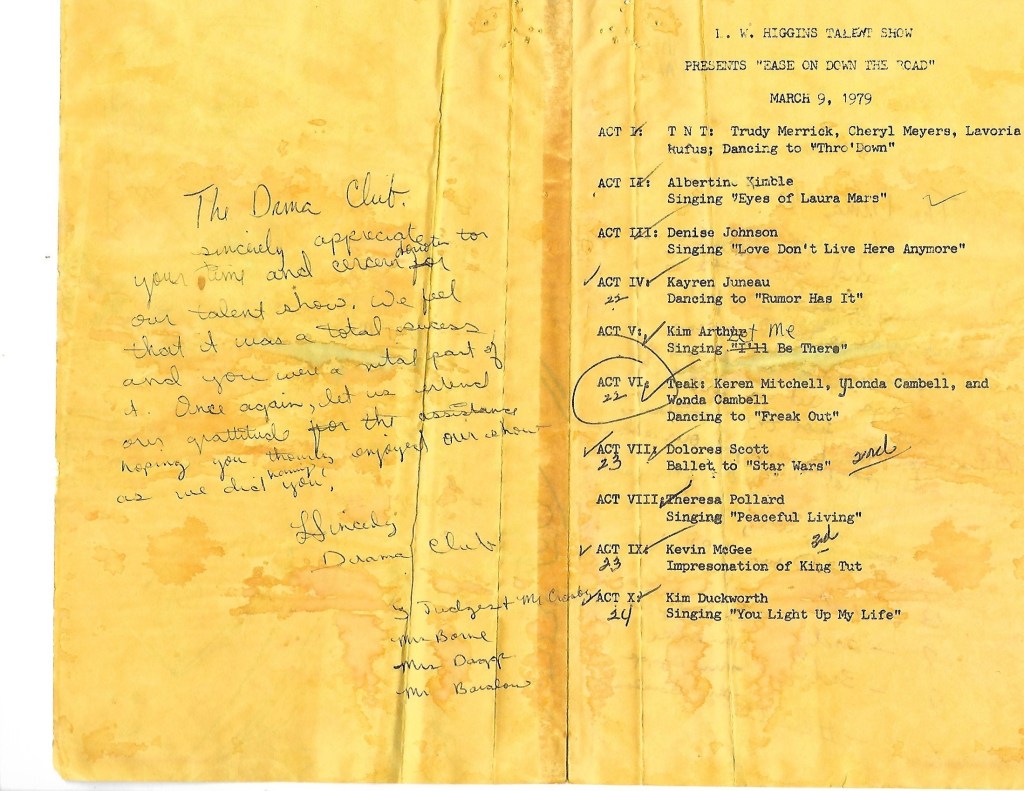 The Drma Club.
sincirly appreciate
your time and
our talent show. We feel
that it was a total sucess
and you were a vital part of
it. Once again, let us extend
our grattitude for the assistance
hoping you enjoyed our show
as we did you.
Sincerly
Drama Club
3 Judges + Mr Crosby
Mrs Borne
Mrs
Mr
L. W. HIGGINS TALENT SHOW
PRESENTS "EASE ON DOWN THE ROAD"
MARCH 9, 1979
ACT I: T N T: Trudy Merrick, Cheryl Meyers, Lavoria
Rufus; Dancing to "Thro'Down"
ACT II: Albertine Kimble
Singing "Eyes of Laura Mars"
ACT III: Denise Johnson
Singing "Love Don't Live Here Anymore"
ACT IV: Kayren Juneau
22 Dancing to "Rumor Has It"
ACT V: Kim Arthur Let Me
Singing "I'll Be There"
ACT VI: Teak: Keren Mitchell, Ylonda Cambell, and
22 Wonda Cambell
Dancing to "Freak Out"
ACT VII: Dolores Scott
23 Ballet to "Star Wars" 2nd
ACT VIII: Theresa Pollard
Singing "Peaceful Living"
3rd
ACT IX: Kevin McGee
23 Impresonation of King Tut
ACT X: Kim Duckworth
24 Singing "You Light Up My Life"